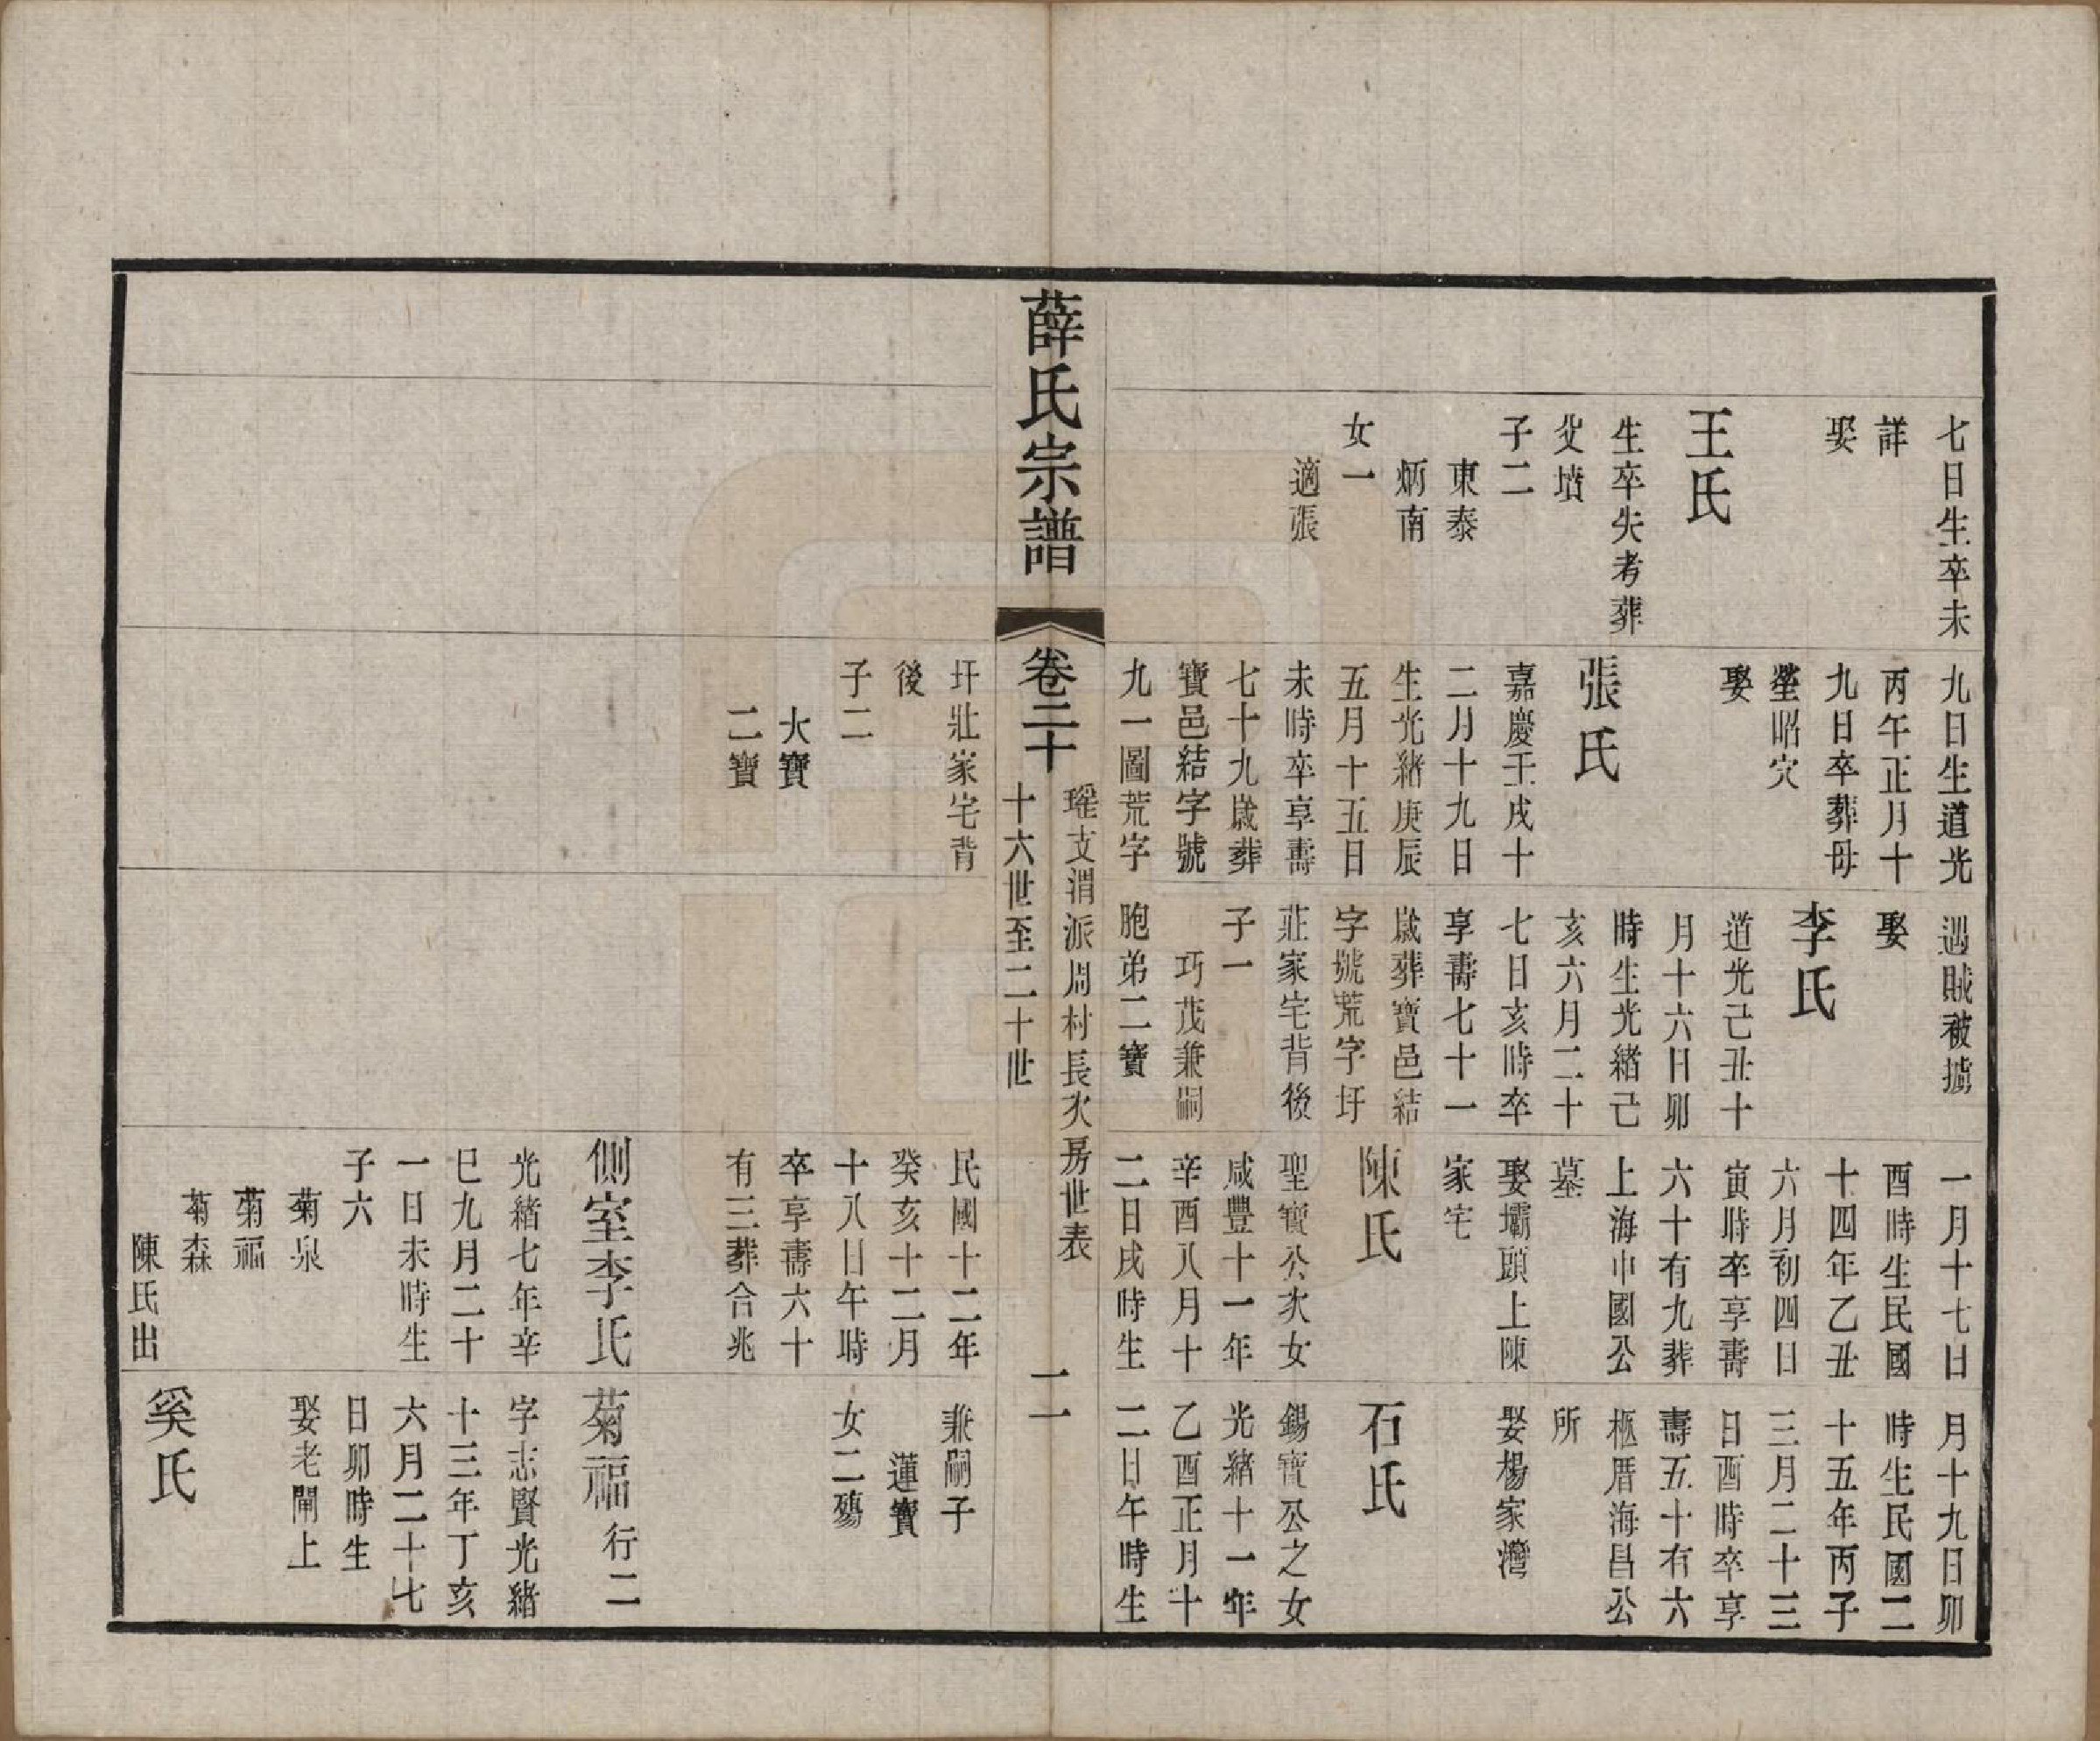 七日生卒未
詳
娶
王氏
生卒失考葬
父墳
子二
東泰
炳南
女一
適張
九日生道光
丙午正月十
九日卒葬母
塋昭穴
娶
張氏
嘉慶壬戌十
二月十九日
生光緒庚辰
五月十五日
未時卒享壽
七十九歲葬
寶邑結字號
九一圖荒字
遇賊被擄
娶
李氏
道光己丑十
月十六日卯
時生光緒己
亥六月二十
七日亥時卒
享壽七十一
歲葬寶邑結
字號荒字圩
莊家宅背後
子一
巧茂兼嗣
胞弟二寶
一月十七日
酉時生民國
十四年乙丑
六月初四日
寅時卒享壽
六十有九葬
上海中國公
墓
娶壩頭上陳
家宅
陳氏
聖寶公次女
咸豐十一年
辛酉八月十
二日戌時生
月十九日卯
時生民國二
十五年丙子
三月二十三
日酉時卒享
壽五十有六
柩厝海昌公
所
娶楊家灣
石氏
錫寶公之女
光緒十一年
乙酉正月十
二日午時生
薛氏宗譜
卷二十
瑤支渭派周村長次房世表
十六世至二十世
一一
圩壯家宅背
後
子二
大寶
二寶
民國十二年
癸亥十二月
十八日午時
卒享壽六十
有三葬合兆
側室李氏
光緒七年辛
巳九月二十
一日未時生
子六
菊泉
菊福
菊森
陳氏出
兼嗣子
蓮寶
女二殤
菊福行二
字志賢光緒
十三年丁亥
六月二十七
日卯時生
娶老閘上
奚氏